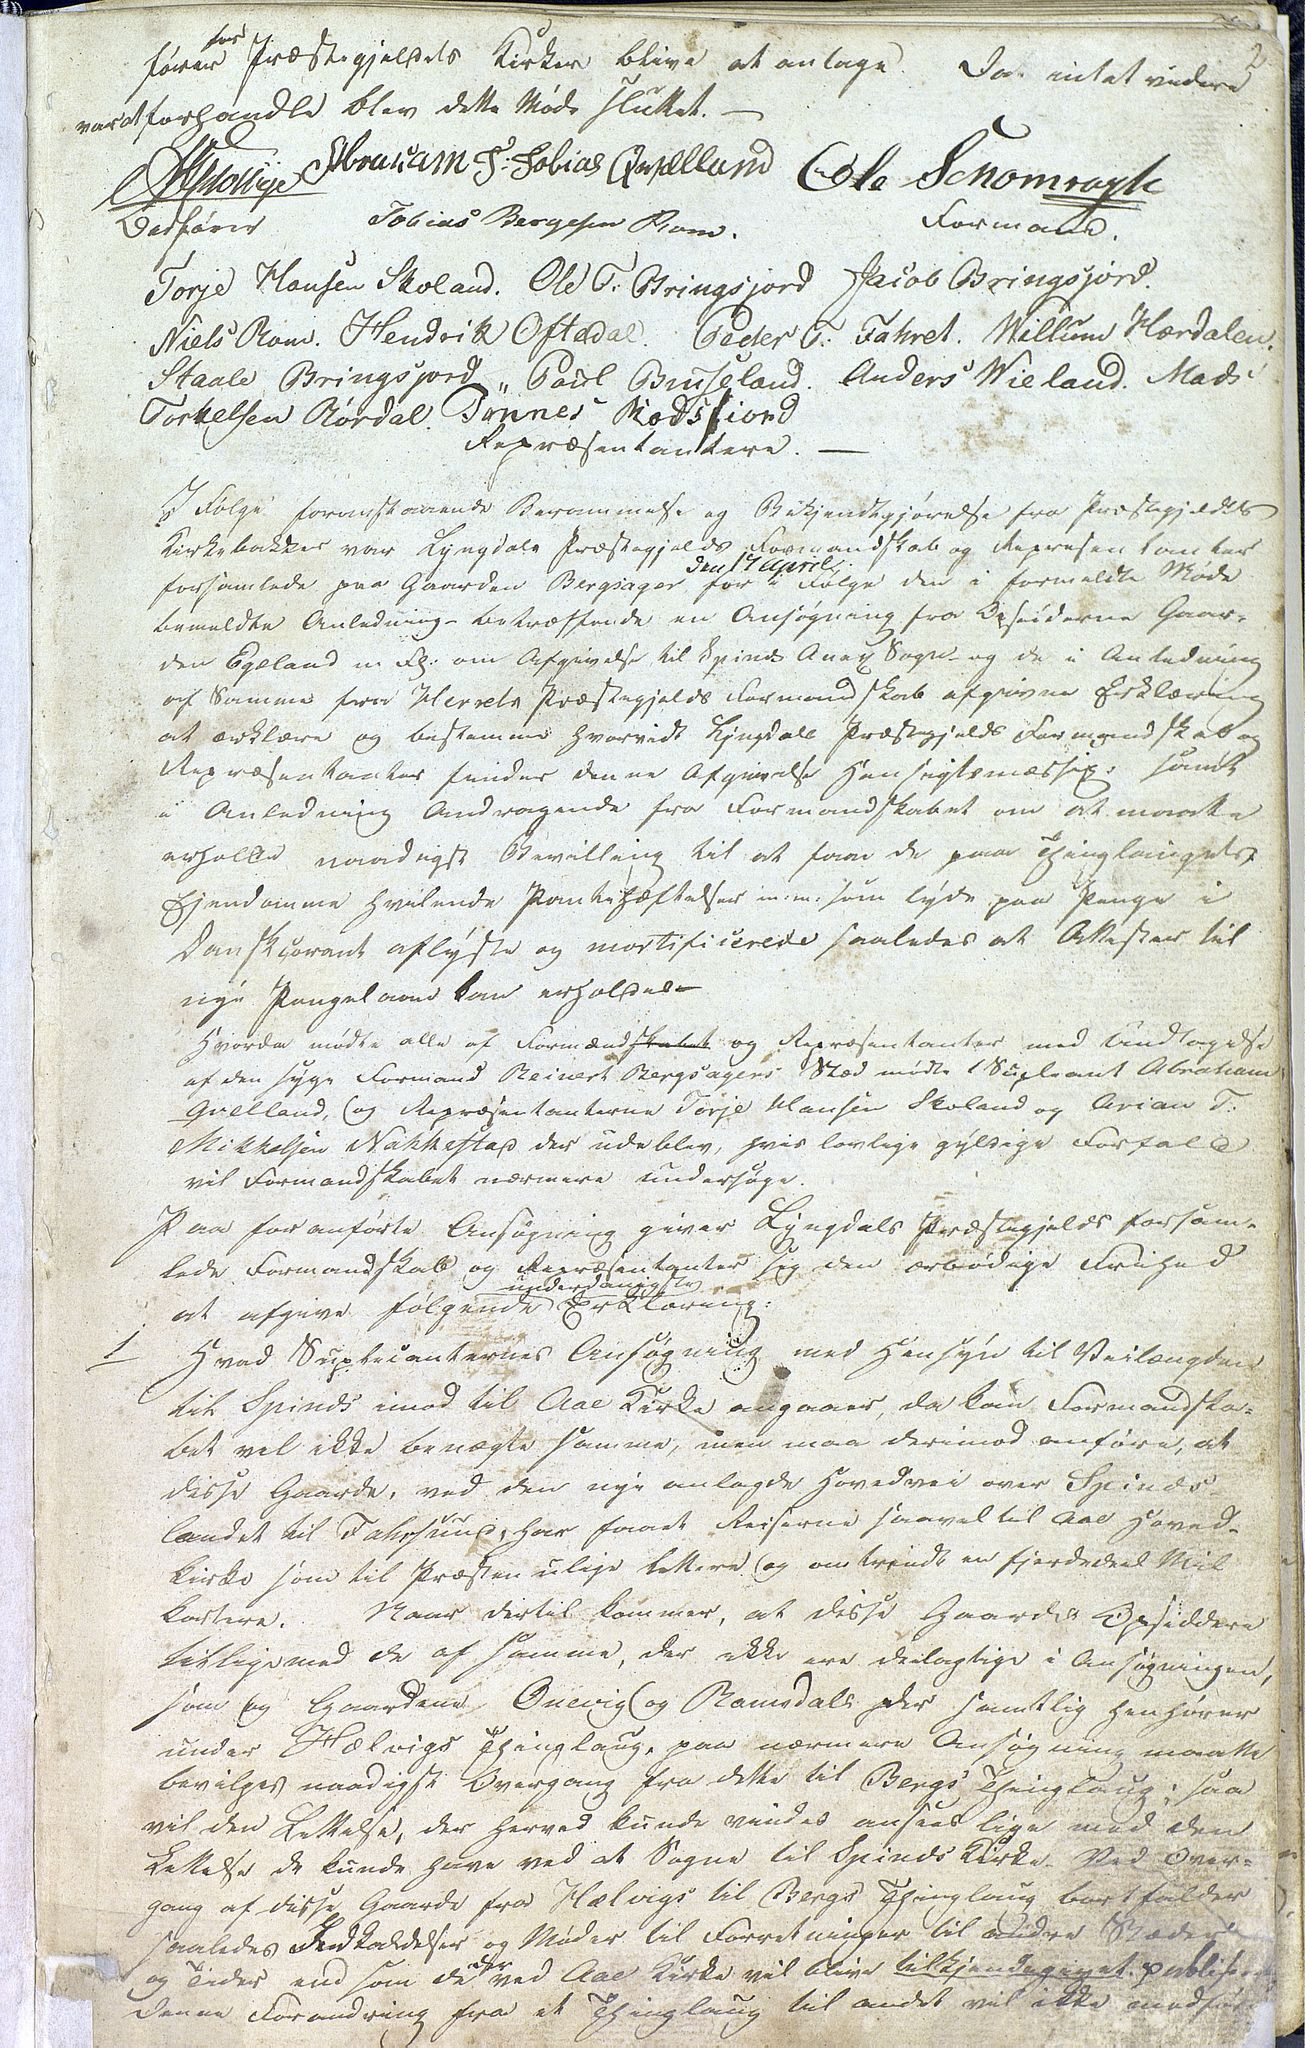 2
fører for Præstegjeldets Kirker blive at antage. Da intet videre
var at forhandle blev dette Møde sluttet. —
Abraham F: Tobias Qvælland Ole Schomragh
Ordfører Tobias Bergesen Rom. Formand.
Torje Hansen Skoland. Ole T. Bringsjord Jacob Bringsjord.
Niels Rom. Hendrik Oftedal. Peder T: Fahret. Willum Hærdalen.
Staale Bringsjord „ Poul Buseland. Anders Wieland. Mads
Torkelsen Rørdal. Tønnes Rødsfiord
Repræsentantere. —
I Følge foranstaaende Berammelse og Bekjendtgjørelse fra Præstegjeldets
Kirkebakker var Lyngdals Præstegjelds Formandskab og Repræsentanter
forsamlede paa Gaarden Bergsager den 17 April for i Følge den i formeldte Møde
bemeldte Anledning betræffende en Ansøgning fra Opsidderne Gaar-
den Egeland m. fl: om Afgivelse til Spinds Anex Sogn og de i Anledning
af Samme fra Herrets Præstegjelds Formandskab afgivne Erklæring
at erklære og bestemme hvorvidt Lyngdals Præstegjelds Formandskab og
Repræsentanter finder denne Afgivelse Hensigtsmæssig: samt
i Anledning Andragende fra Formandskabet om at maatte
erholde naadigst Bevilling til at faae de paa Thinglaugets
Ejendomme hvilende Pantehæftelser m: m: som lyde paa Penge i
Dansk Courant aflyste og mortificerede saaledes at Attester til
nye Pengelaane kan erholdes —
Hvorda mødte alle af Formandskabet og Repræsentanter med Undtagelse
af den syge Formand Reinert Bergsagers Sted mødte 1 Supleant Abraham
Qvelland, (og Repræsentanterne Torje Hansen Skoland og Arian T:
Mikkelsen Nakkestad der udeblev, hvis lovlige gyldige Forfald
vil Formandskabet nærmere undersøge.
Paa foranførte Ansøgning giver Lyngdals Præstegjelds forsam-
lede Formandskab og Repræsentanter sig den ærbødige Frihed
at afgive følgende underdanigste Erklæring:
1 Hvad Suplicanternes Ansøgning med Hensyn til Veilængden
til Spinds imod til Aae Kirke angaaer, da kan Formandska-
bet vel ikke benægte samme, men maa derimod anføre, at
disse Gaarde, ved den nye anlagde Hovedvei over Spinds-
landet til Fahrsund, har faaet Reiserne saavel til Aae Hoved-
kirke som til Præsten ulige lettere (og omtrendt en fjerdedeel Miil
kortere. Naar dertil kommer, at disse Gaardes Opsiddere
tillige med de af samme, der ikke ere deelagtige i Ansøgningen,
som og Gaardene Qvevig (og Ramsdals der samtlig henhører
under Hælvigs Thinglaug, paa nærmere Ansøgning maatte
bevilges naadigst Overgang fra dette til Bergs Thinglaug; saa
vil den Lettelse, der herved kunde vindes ansees lige med den
Lettelse de kunde have ved at Sogne til Spinds Kirke. Ved Over-
gang af disse Gaarde fra Hælvigs til Bergs Thinglaug bortfalder
saaledes Indkaldelser og Møder til Forretninger til andre Stæder
og Tider end som de der ved Aae Kirke vil blive tilkjendegivet
denne Forandring fra et Thinglaug til andet vil ikke medfør